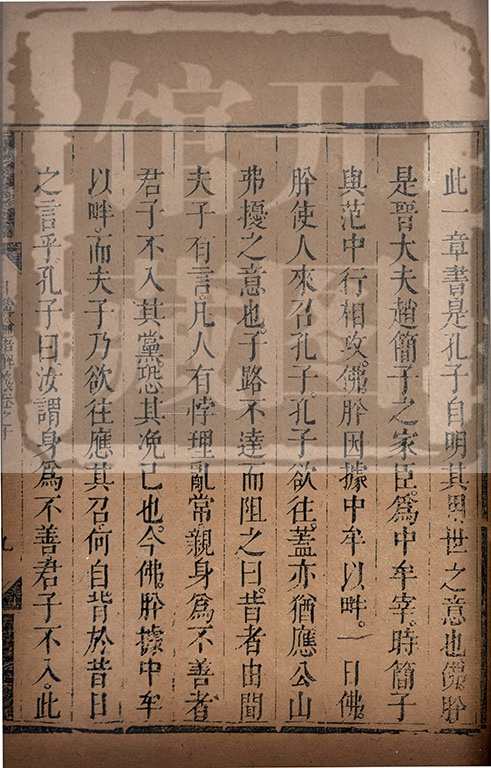 此一章書是孔子自明其用世之意也佛肸
是晉大夫趙簡子之家臣為中牟宰時簡子
與范中行相攻佛肸因據中牟以畔一日佛
肸使人來召孔子孔子欲往蓋亦猶應公山
弗擾之意也子路不達而阻之曰昔者由聞
夫子有言凡人有悖理亂常親身為不善者
君子不入其黨恐其浼己也今佛肸據中牟
以畔而夫子乃欲往應其召何自背於昔日
之言乎孔子曰汝謂身為不善君子不入此
九